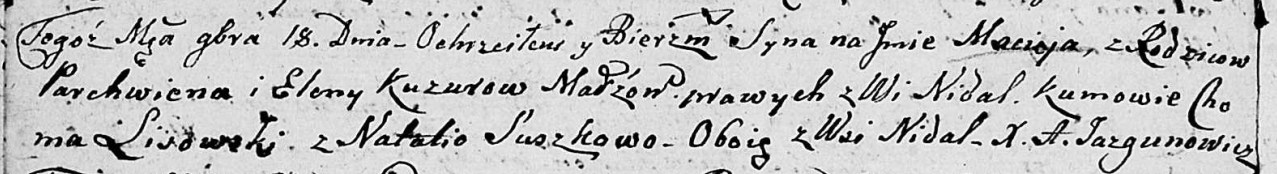 Tegoż Mca 9bra 18. Dnia - Ochrzciłem y Bierzm Syna na Jmie Macieja, z Rodzicow
Parchwiena i Eleny Kuzurow Małżoń. prawych z Wi Nidal. Kumowie Cho
ma Lisowski. z Natalio Suszkowo - Oboie z Wsi Nidal - X. A. Jazgunowicz